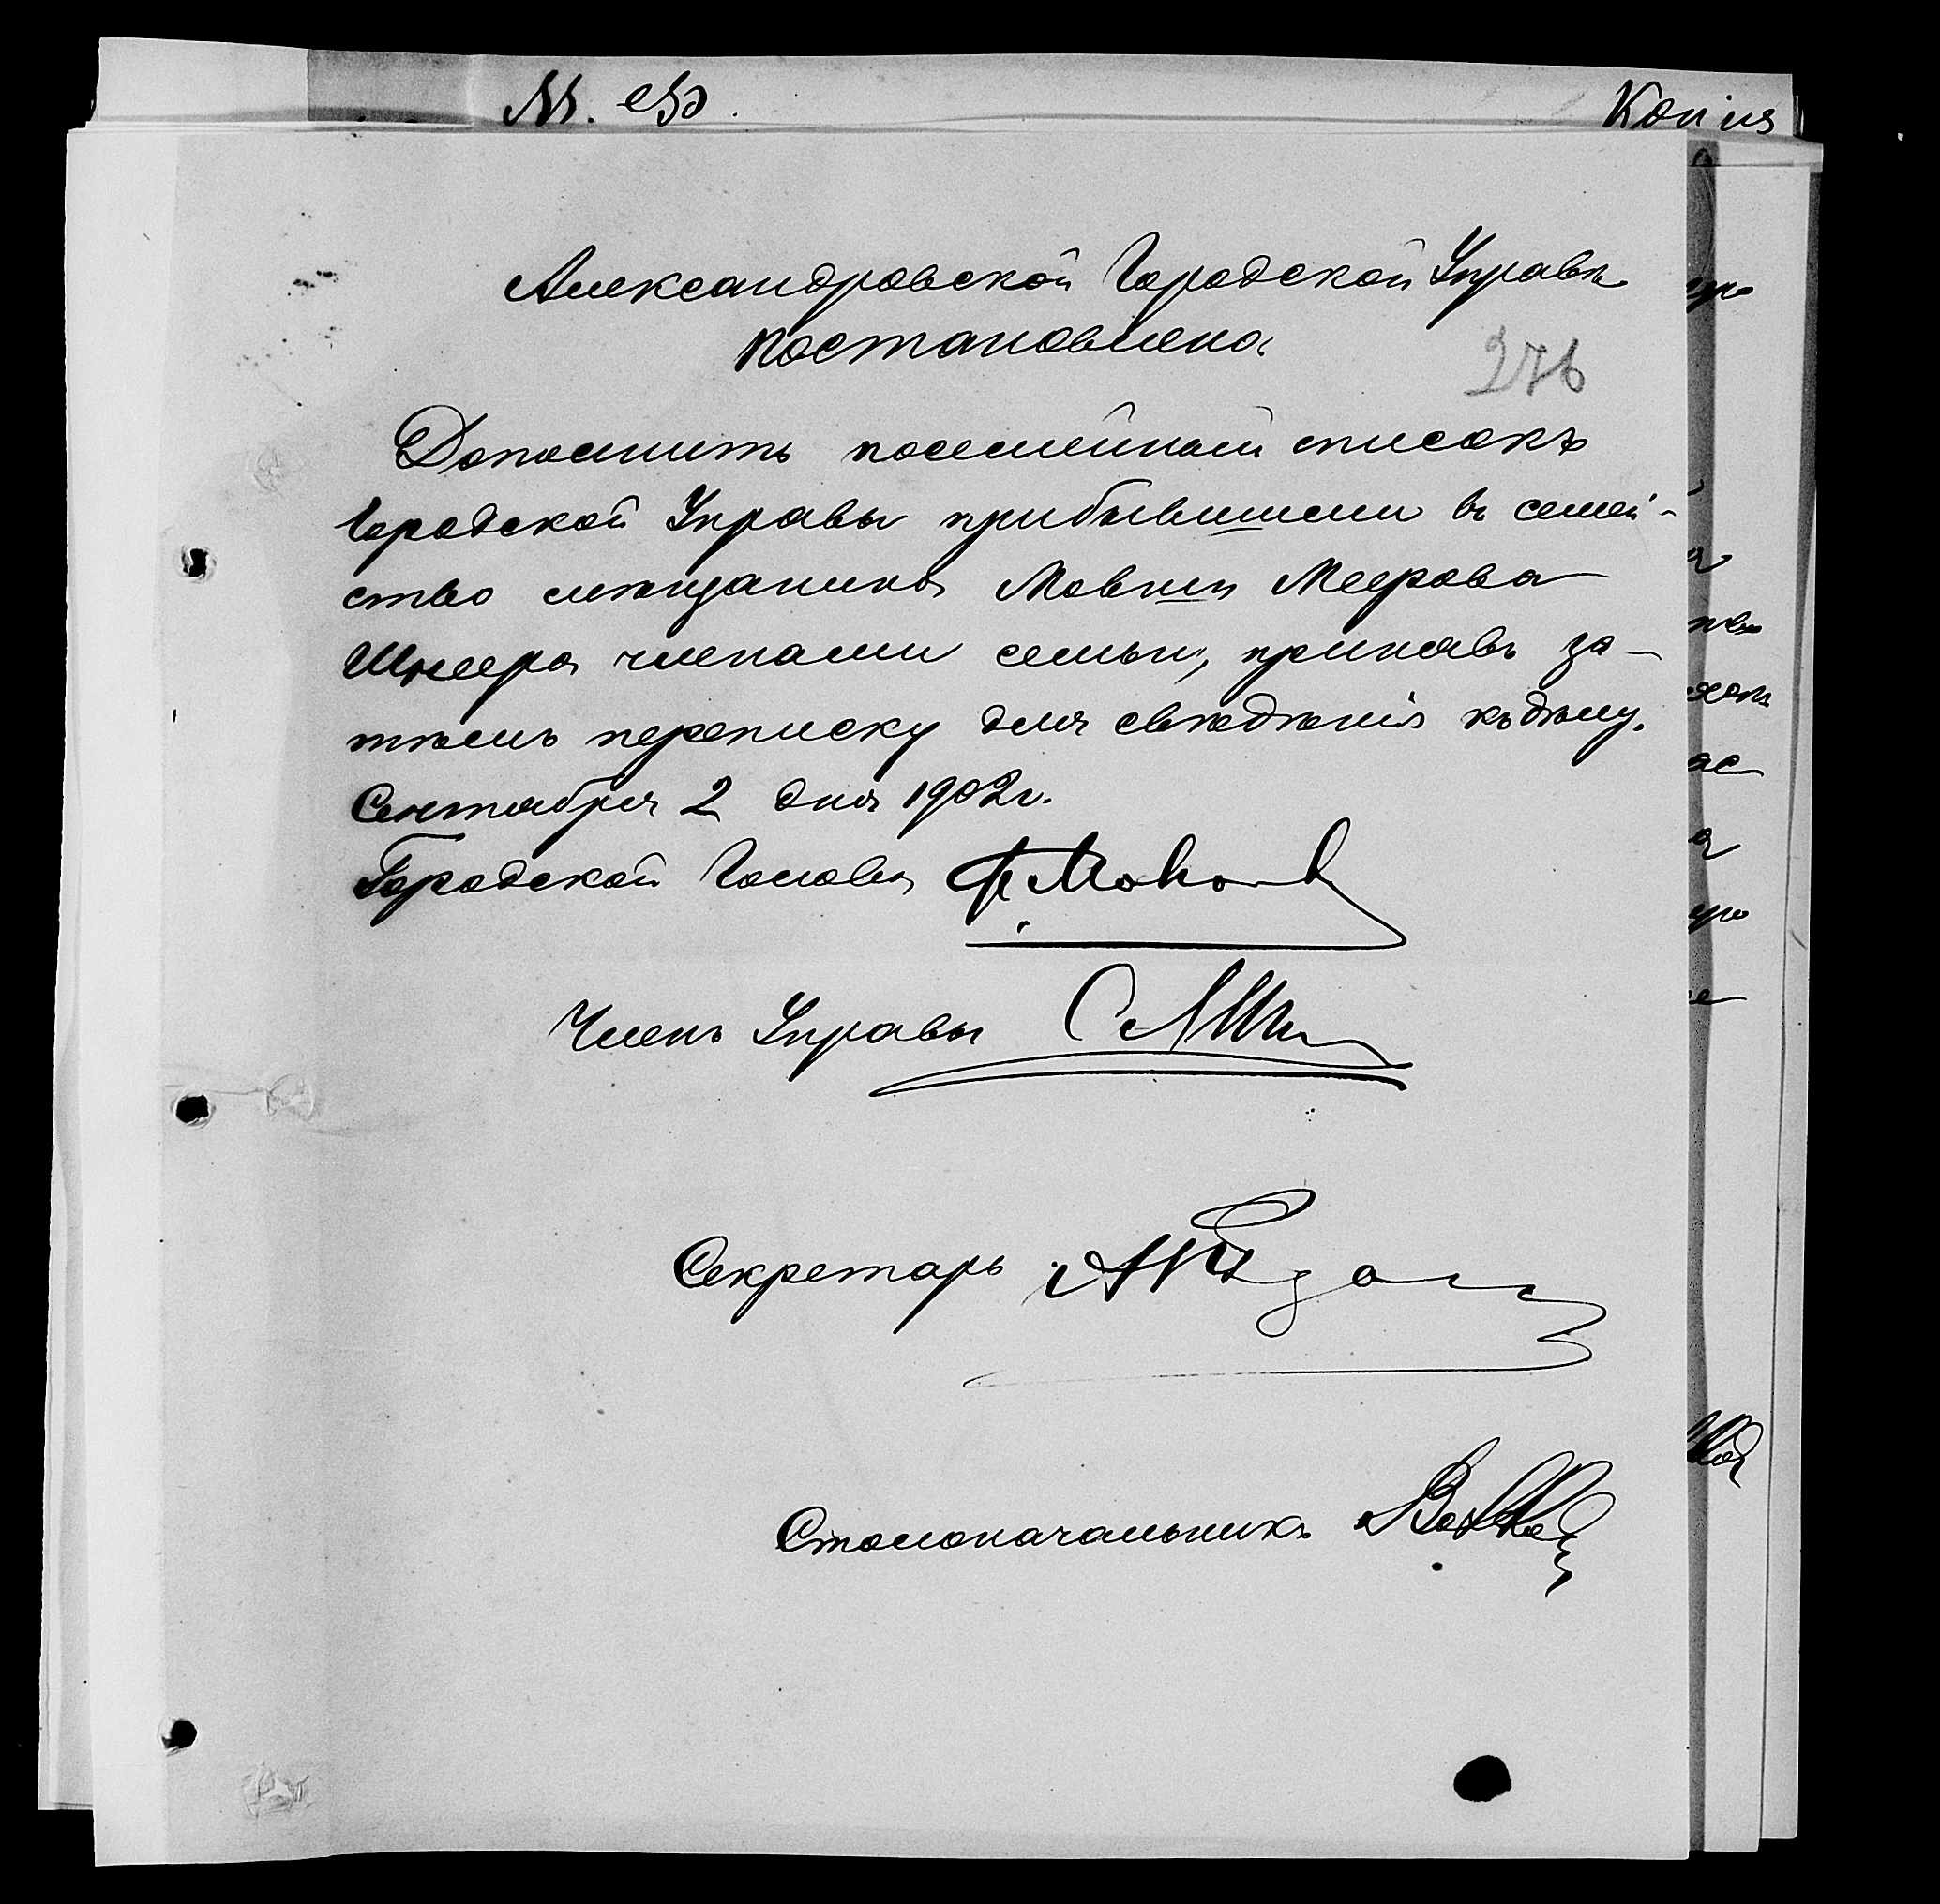 М. В. Д.
Копия
Александровской Городской Управы
постановлено
276
Дополнить посемейный списокъ
Городской Управы прибывшими въ семей-
ство мѣщанина Мовши Меерова
Шнеера членами семьи, принявъ за-
тѣмъ переписку для свѣдѣнія къ дѣлу.
Сентября 2 дня 1902 г.
Городской Голова
Членъ Управы
Секретарь
Столоначальникъ